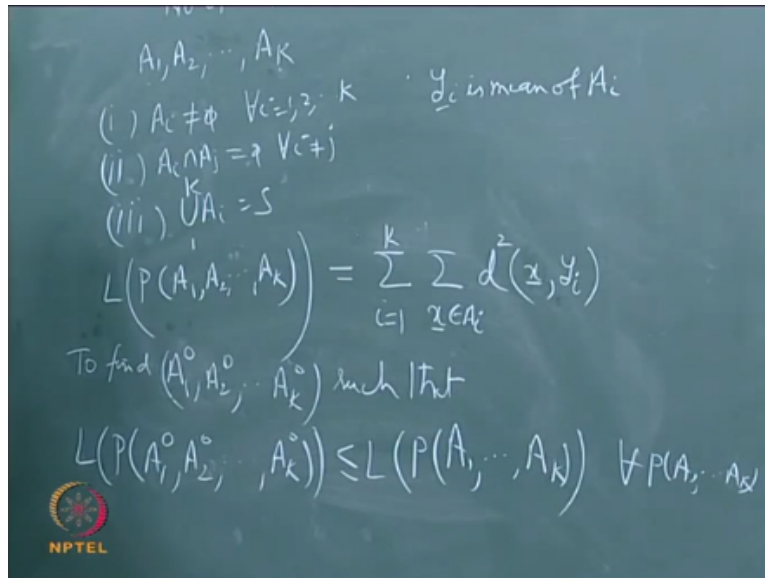 A₁, A₂, ⋯, A_K
(i) A_i ≠ φ ∀i=1,2,⋯ K y̲_i is mean of A_i
(ii) A_i ∩ A_j = φ ∀i≠j
(iii) ⋃₁ᴷ A_i = S
L(P(A₁,A₂,⋯,A_K)) = ∑_{i=1}^{K} ∑_{x̲∈A_i} d²(x̲, y̲_i)
To find (A₁⁰, A₂⁰, ⋯ A_K⁰) such that
L(P(A₁⁰, A₂⁰, ⋯, A_K⁰)) ≤ L(P(A₁,⋯,A_K)) ∀ P(A₁,⋯A_K)
NPTEL